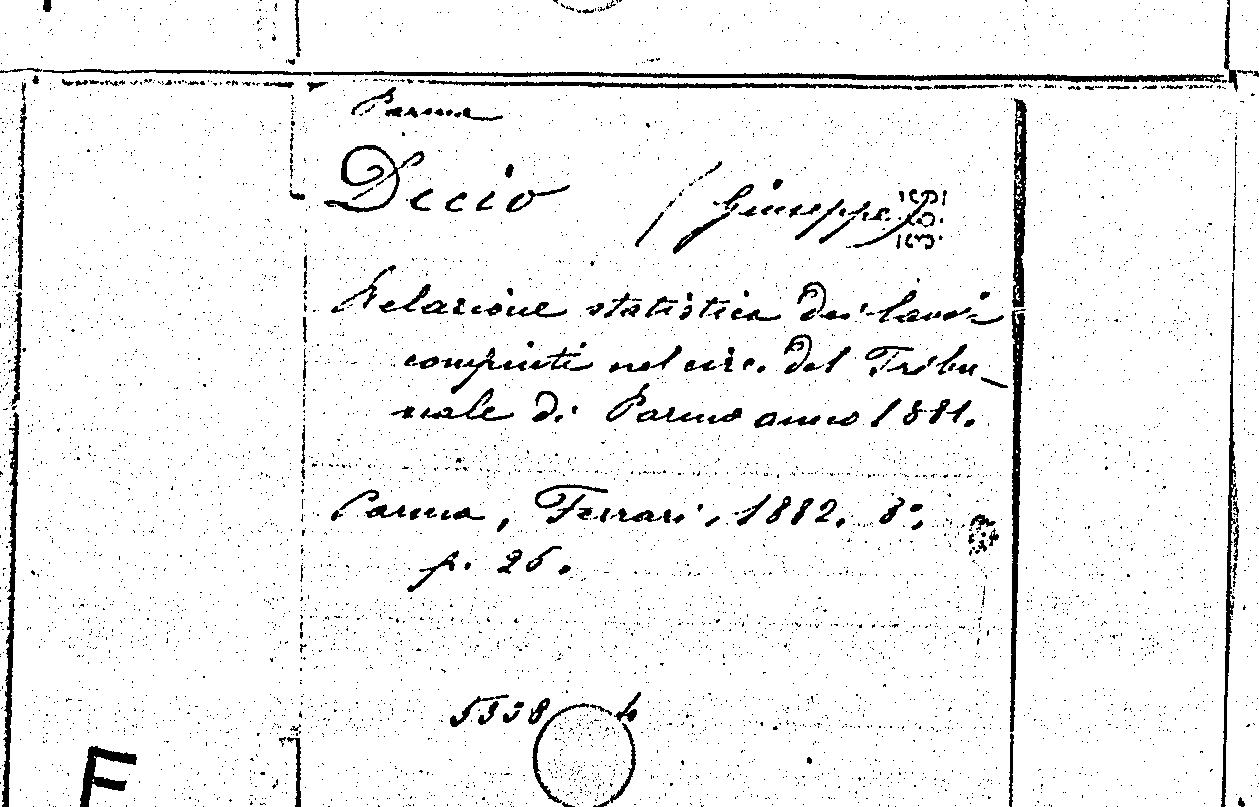 Parma
Decio (Giuseppe)
Relazione statistica dei lavori
compiuti nel circ. del Tribu-
nale di Parma anno 1881.
Parma, Ferrari, 1882. 8°.
p. 26.
5338 4
F